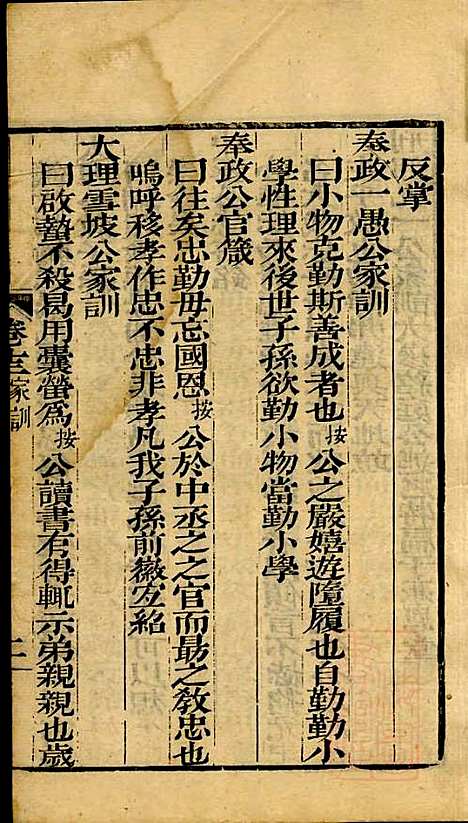 反掌
奉政一愚公家訓
曰小物克勤斯善成者也按公之嚴嬉遊隨履也自勤勤小
學性理來後世子孫欲勤小物當勤小學
奉政公官箴
曰往矣忠勤毋忘國恩按公於中丞之之官而最之敎忠也
嗚呼移孝作忠不忠非孝凡我子孫前徽宜紹
大理雪坡公家訓
曰啟蟄不殺曷用囊螢為按公讀書有得輒示弟親親也歲
卷三家訓
二